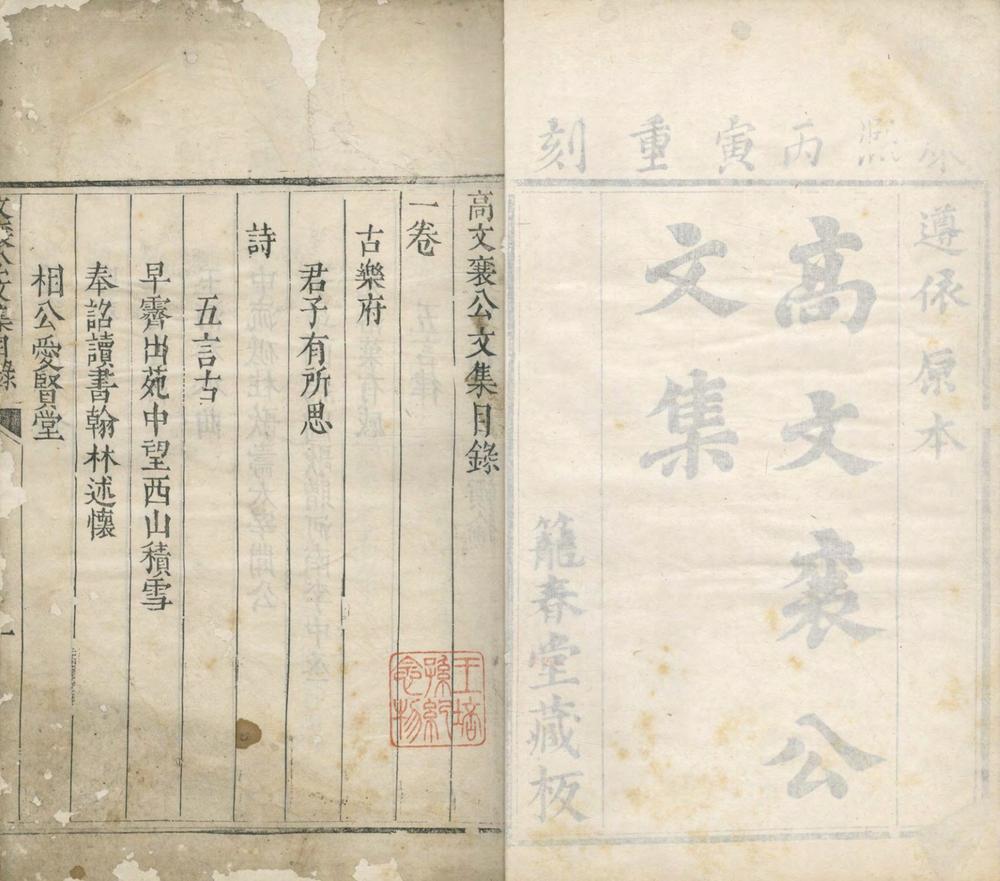 康熙丙寅重刻
遵依原本
高文襄公
文集
籠春堂藏板
高文襄公文集目錄
一卷
古樂府
君子有所思
詩
五言古
早霽出苑中望西山積雪
奉詔讀書翰林述懷
相公愛賢堂
文襄公文集目錄
一
王培孫紀念物